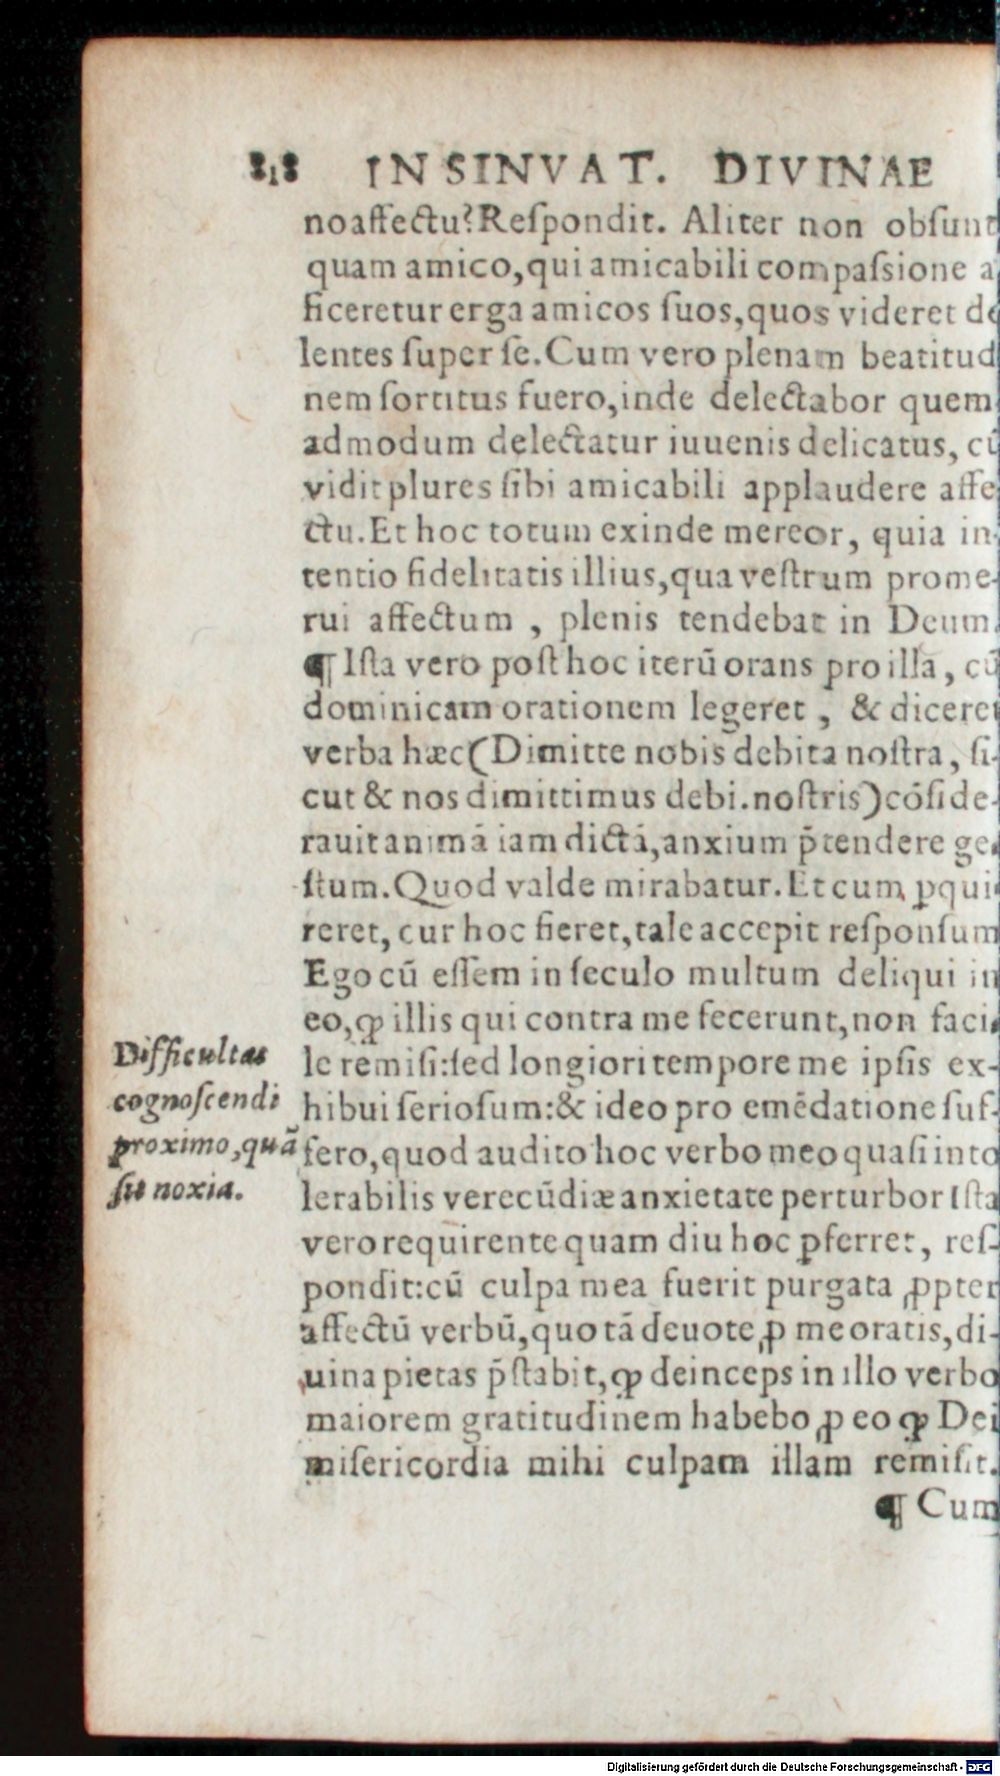 818 INSINVAT. DIVINAE
noaffectu? Reſpondit. Aliter non obſunt
quam amico, qui amicabili compaſsione a
ficeretur erga amicos ſuos, quos videret do
lentes ſuper ſe. Cum vero plenam beatitud
nem ſortitus fuero, inde delectabor quem
admodum delectatur iuuenis delicatus, cū
vidit plures ſibi amicabili applaudere affe
ctu. Et hoc totum exinde mereor, quia in-
tentio fidelitatis illius, qua veſtrum prome-
rui affectum , plenis tendebat in Deum.
¶ Iſta vero poſt hoc iterū orans pro illa, cū
dominicam orationem legeret , & diceret
verba hæc (Dimitte nobis debita noſtra, ſi-
cut & nos dimittimus debi. noſtris) cōſide-
rauit animā iam dictā, anxium p̄tendere ge-
ſtum. Quod valde mirabatur. Et cum ꝑqui
reret, cur hoc fieret, tale accepit reſponſum
Ego cū eſſem in ſeculo multum deliqui in
eo, ꝙ illis qui contra me fecerunt, non faci-
le remiſi: ſed longiori tempore me ipſis ex-
hibui ſerioſum: & ideo pro emēdatione ſuf-
fero, quod audito hoc verbo meo quaſi into
lerabilis verecūdiæ anxietate perturbor Iſta
vero requirente quam diu hoc ꝑferret, reſ-
pondit: cū culpa mea fuerit purgata ꝓpter
affectū verbū, quo tā deuote ꝓ me oratis, di-
uina pietas p̄ſtabit, ꝙ deinceps in illo verbo
maiorem gratitudinem habebo ꝓ eo ꝙ Dei
miſericordia mihi culpam illam remiſit.
¶ Cum
Difficultas
cognoſcendi
proximo, quā
ſit noxia.
Digitalisierung gefördert durch die Deutsche Forschungsgemeinschaft - DFG